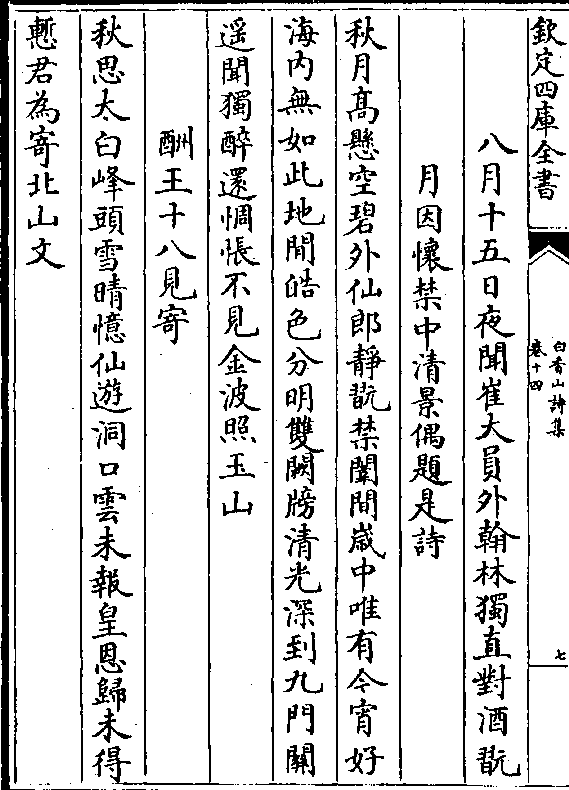 欽定四庫全書
白香山詩集
卷十四
七
八月十五日夜聞崔大員外翰林獨直對酒翫
月因懷禁中清景偶題是詩
秋月髙懸空碧外仙郎靜翫禁闈間嵗中唯有今宵好
海内無如此地閒皓色分明雙闕牓清光深到九門關
遥聞獨醉還惆悵不見金波照玉山
酬王十八見寄
秋思太白峰頭雪晴憶仙遊洞口雲未報皇恩歸未得
慙君為寄北山文